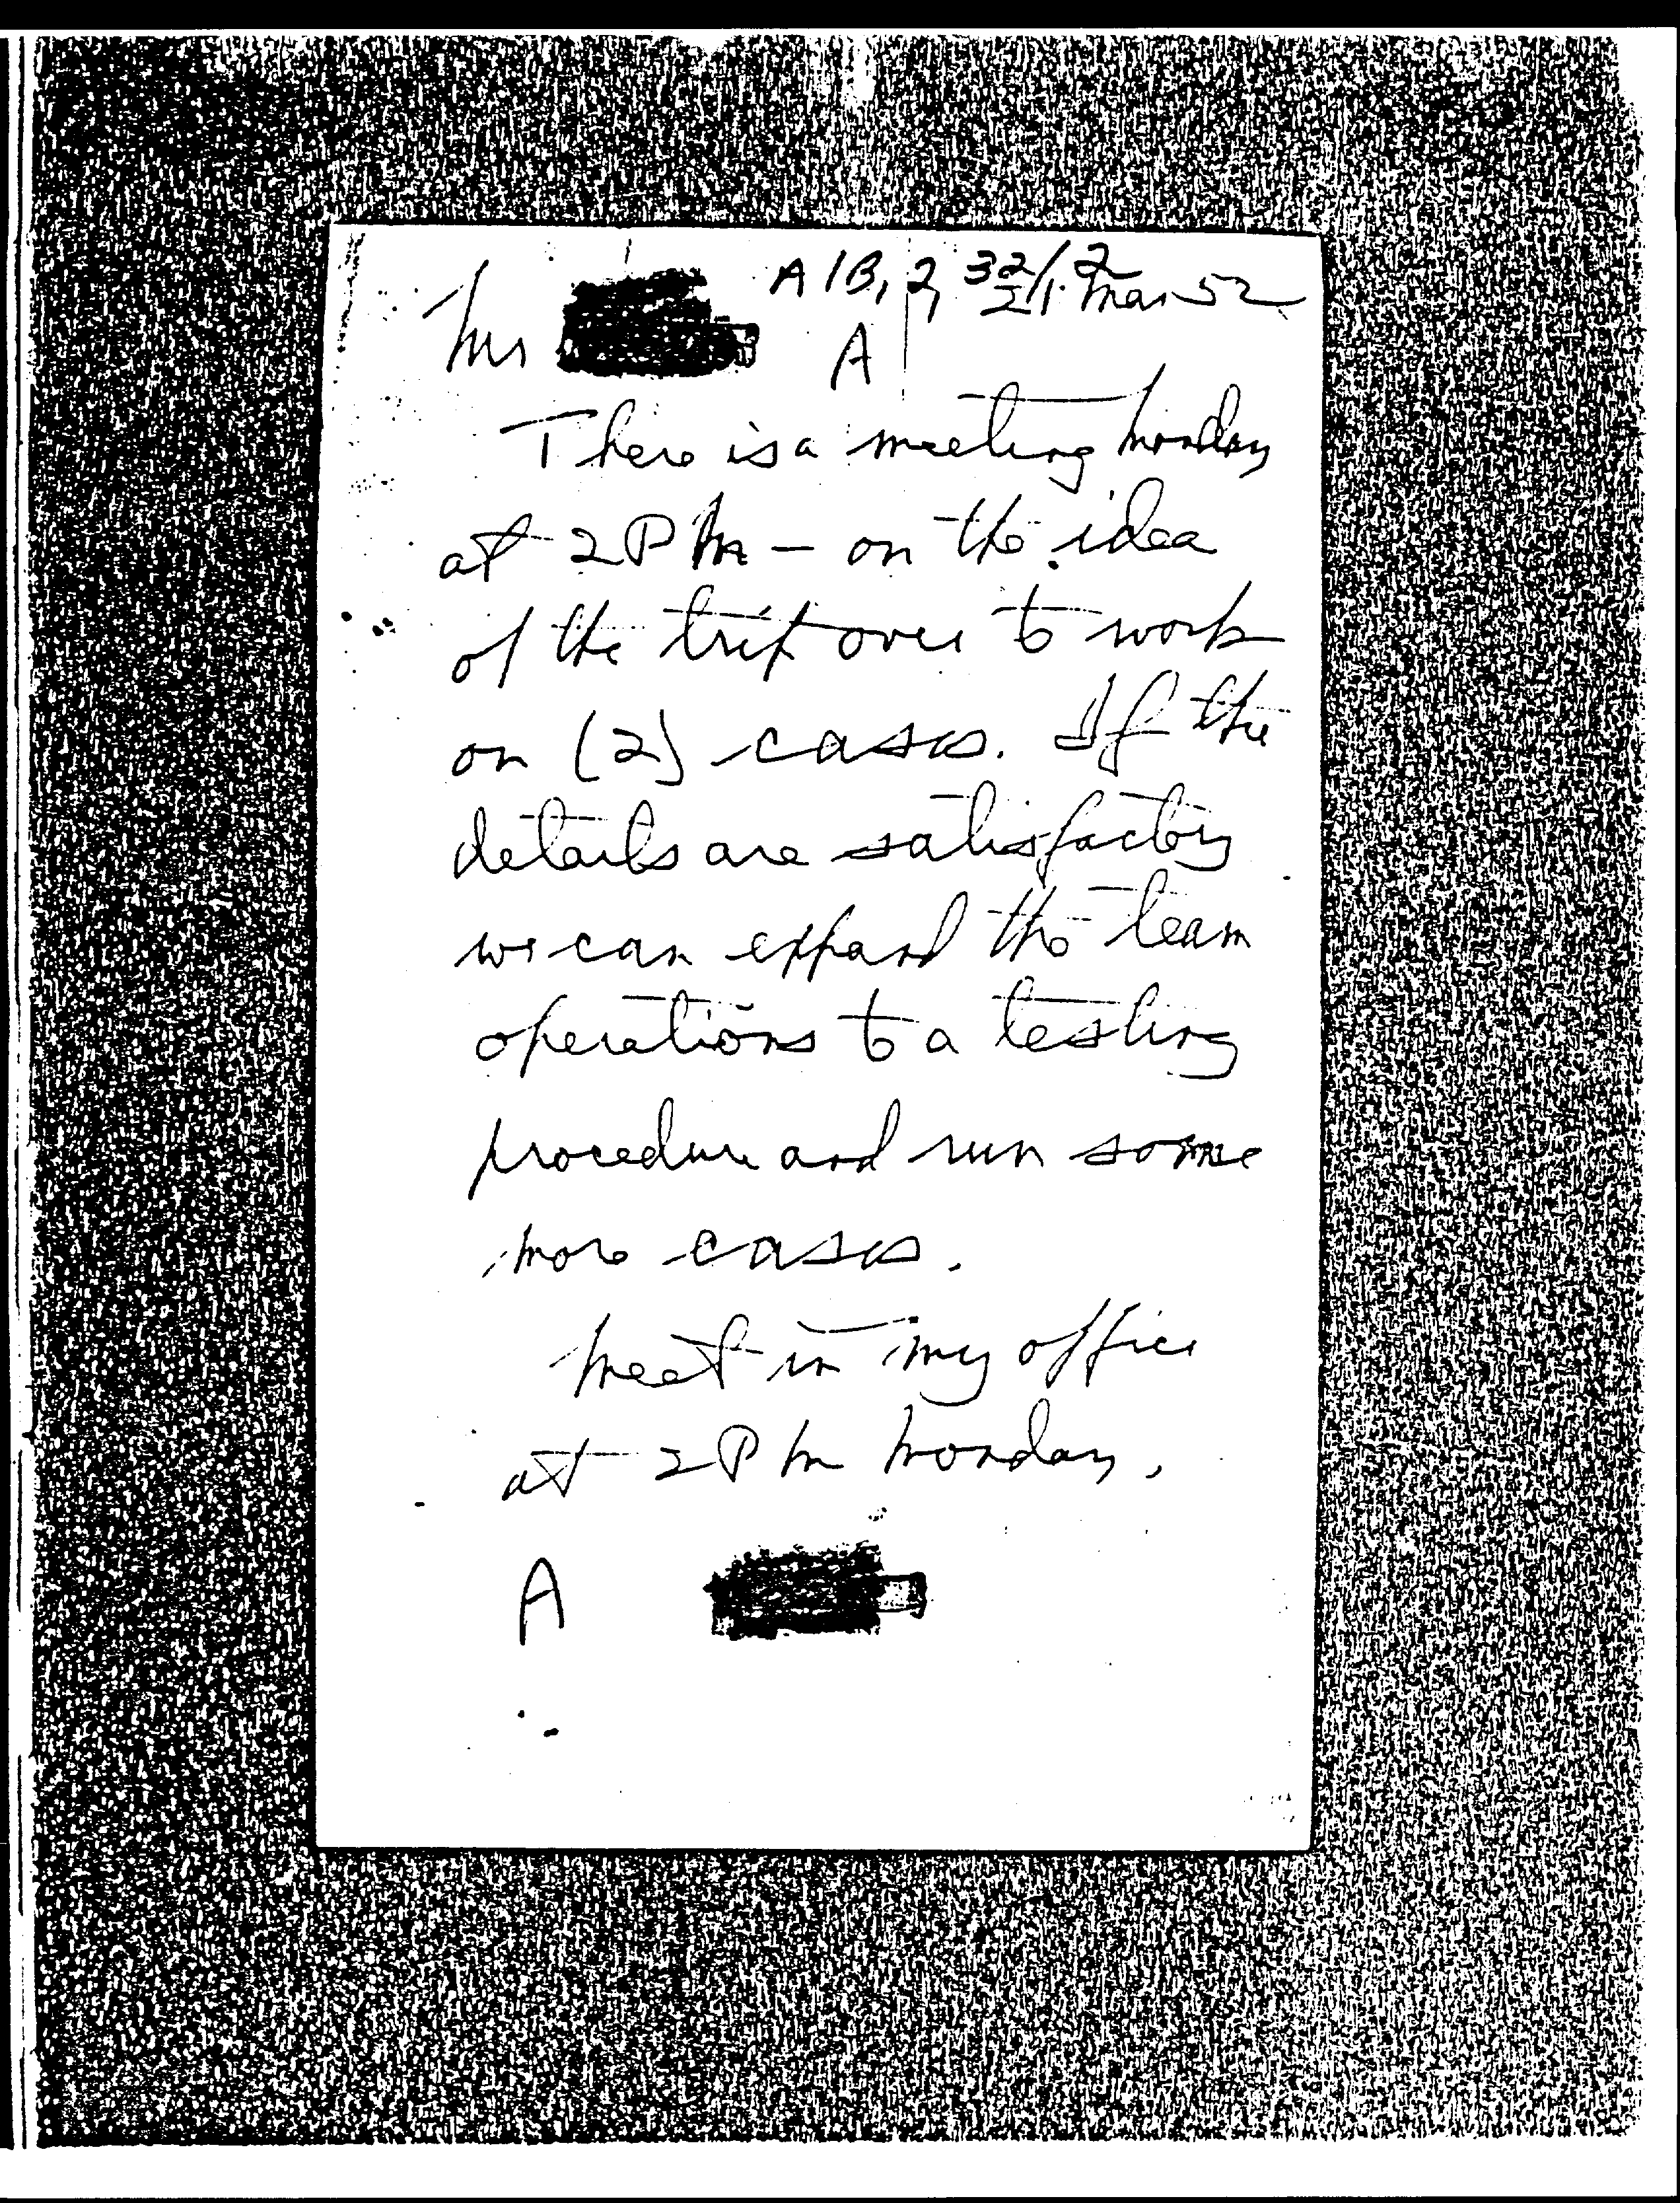 A/B, 2, 32/2
21 Mar 52
Mr
A
There is a meeting Monday
at 2 PM – on the idea
of the trip over to work
on (2) cases. If the
details are satisfactory
we can expand the team
operations to a testing
procedure and run some
more cases.
Meet in my office
at 2 PM Monday.
A